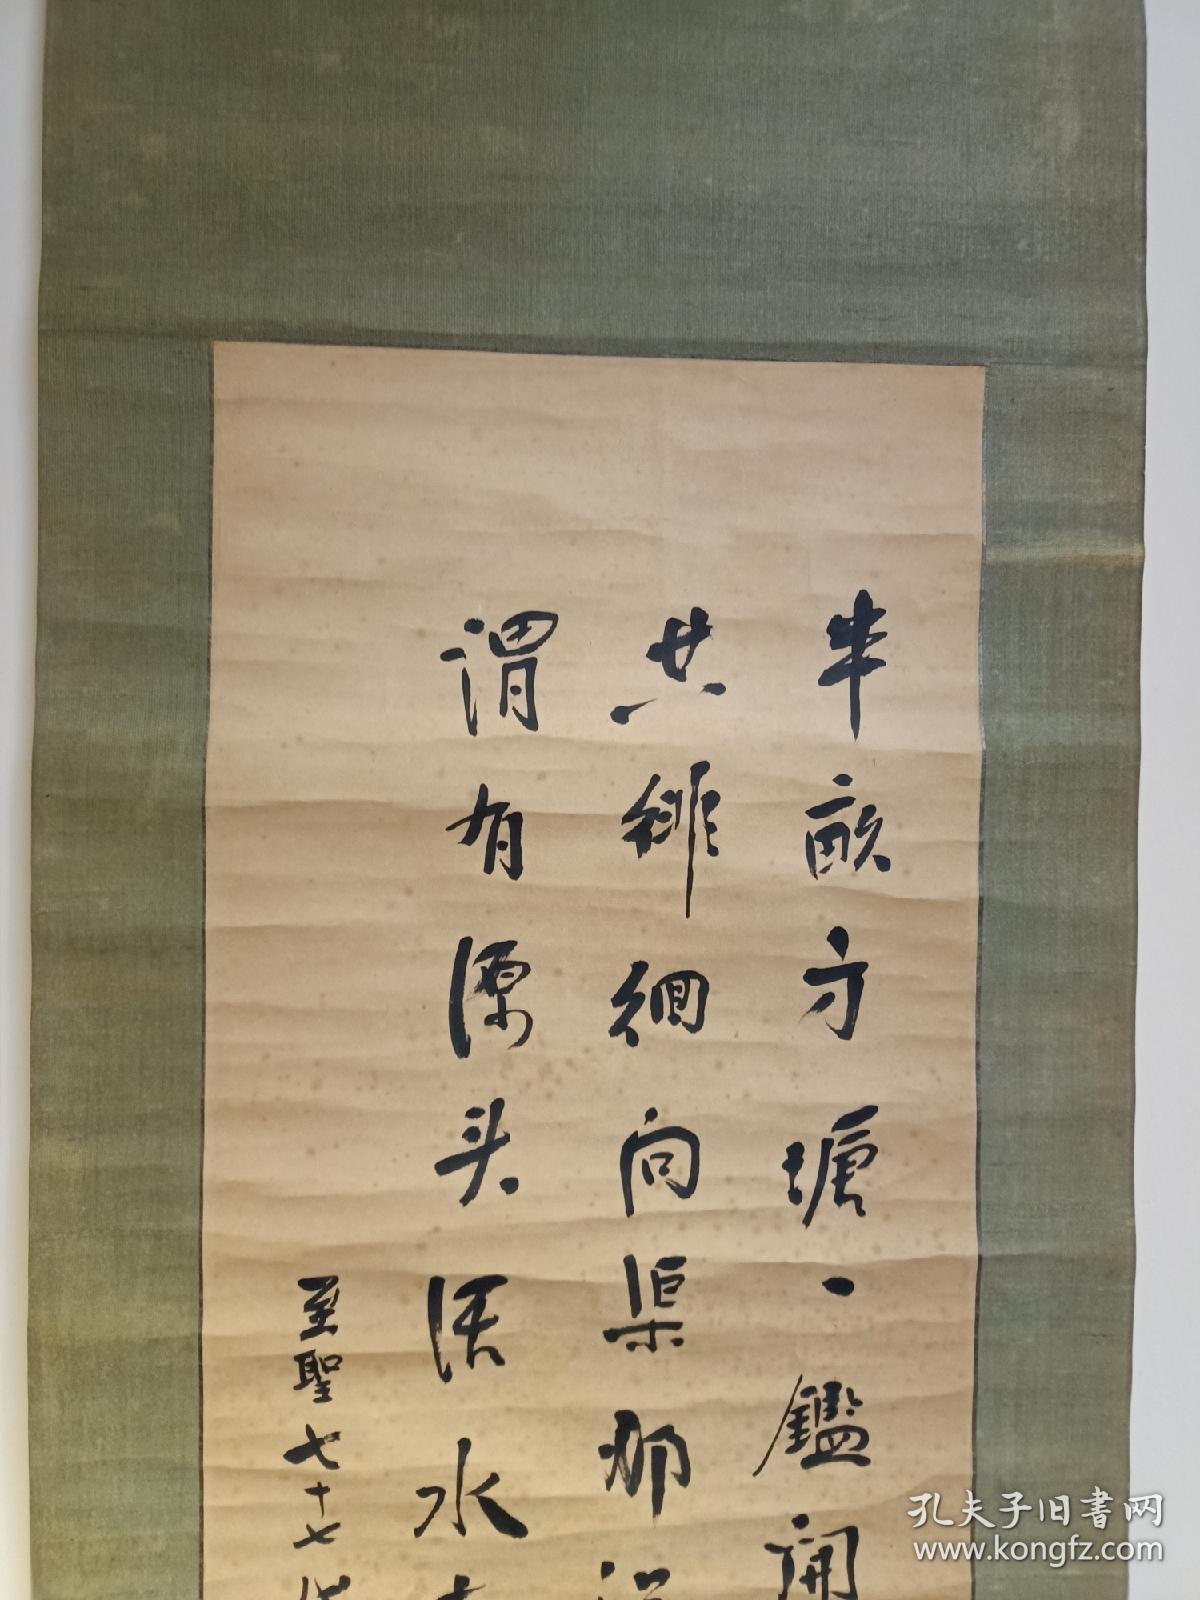 半畝方塘一鑑開
共徘徊問渠那
謂有源头活水
至聖七十七代
孔夫子旧書网
www.kongfz.com